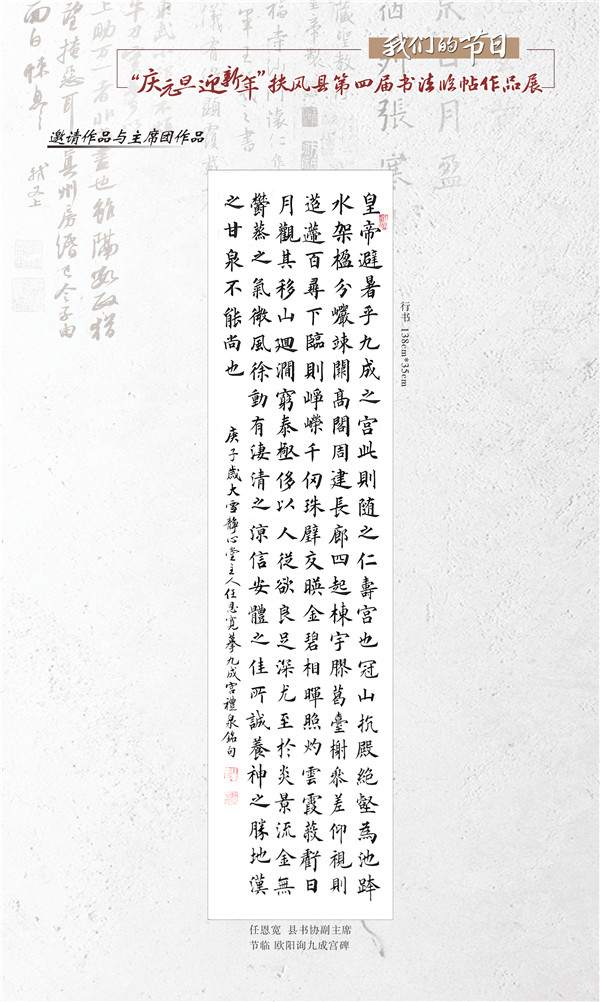 我们的节日
“庆元旦迎新年”扶风县第四届书法临帖作品展
邀请作品与主席团作品
皇帝避暑乎九成之宫此則随之仁壽宫也冠山抗殿絶壑為池跨
水架楹分巗竦闕高閣周建長廊四起棟宇膠葛臺榭叅差仰視則
迢遰百尋下臨則崢嶸千仞珠璧交暎金碧相暉照灼雲霞蔽虧日
月觀其移山廻澗窮泰極侈以人從欲良足深尤至於炎景流金無
欝蒸之氣微風徐動有淒清之涼信安體之佳所誠養神之勝地漢
之甘泉不能尚也
庚子歲大雪靜心堂主人任恩寬摹九成宮禮泉銘句
行书 138cm*35cm
任恩宽 县书协副主席
节临 欧阳询九成宫碑